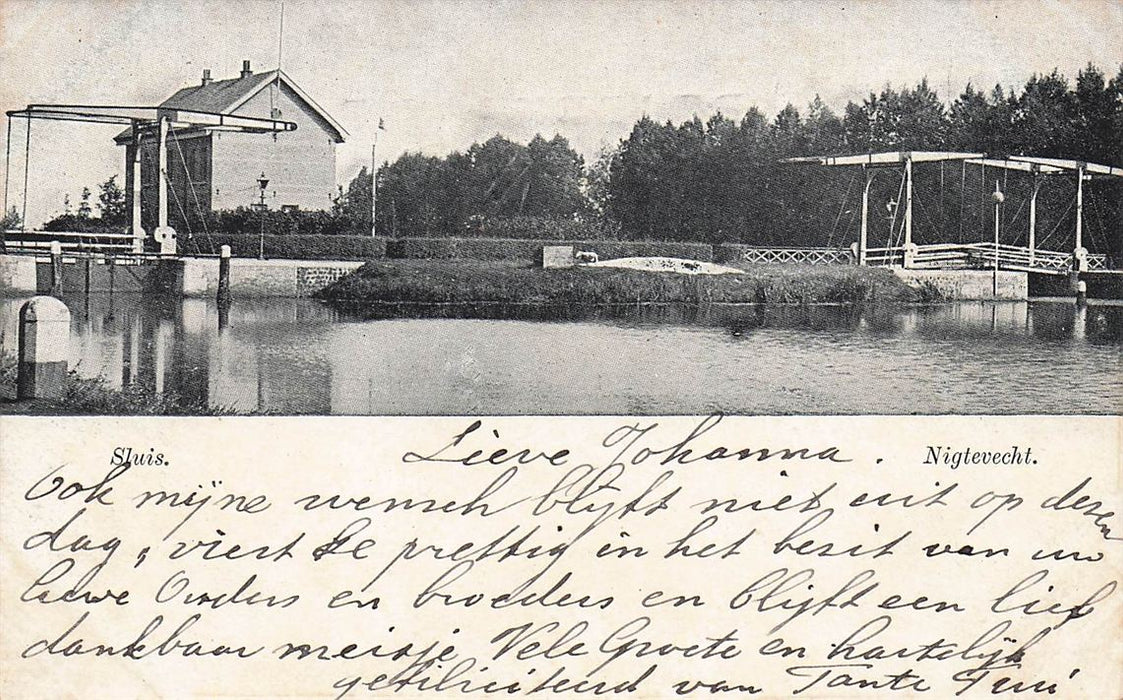 Sluis.
Lieve Johanna.
Nigtevecht.
Ook mijne wensch blijft niet uit op dezen
dag, viert Ze prettig in het bezit van uw
lieve Ouders en broeders en blijft een lief
dankbaar meisje Vele Groete en hartelijk
gefiliciteerd van Tante